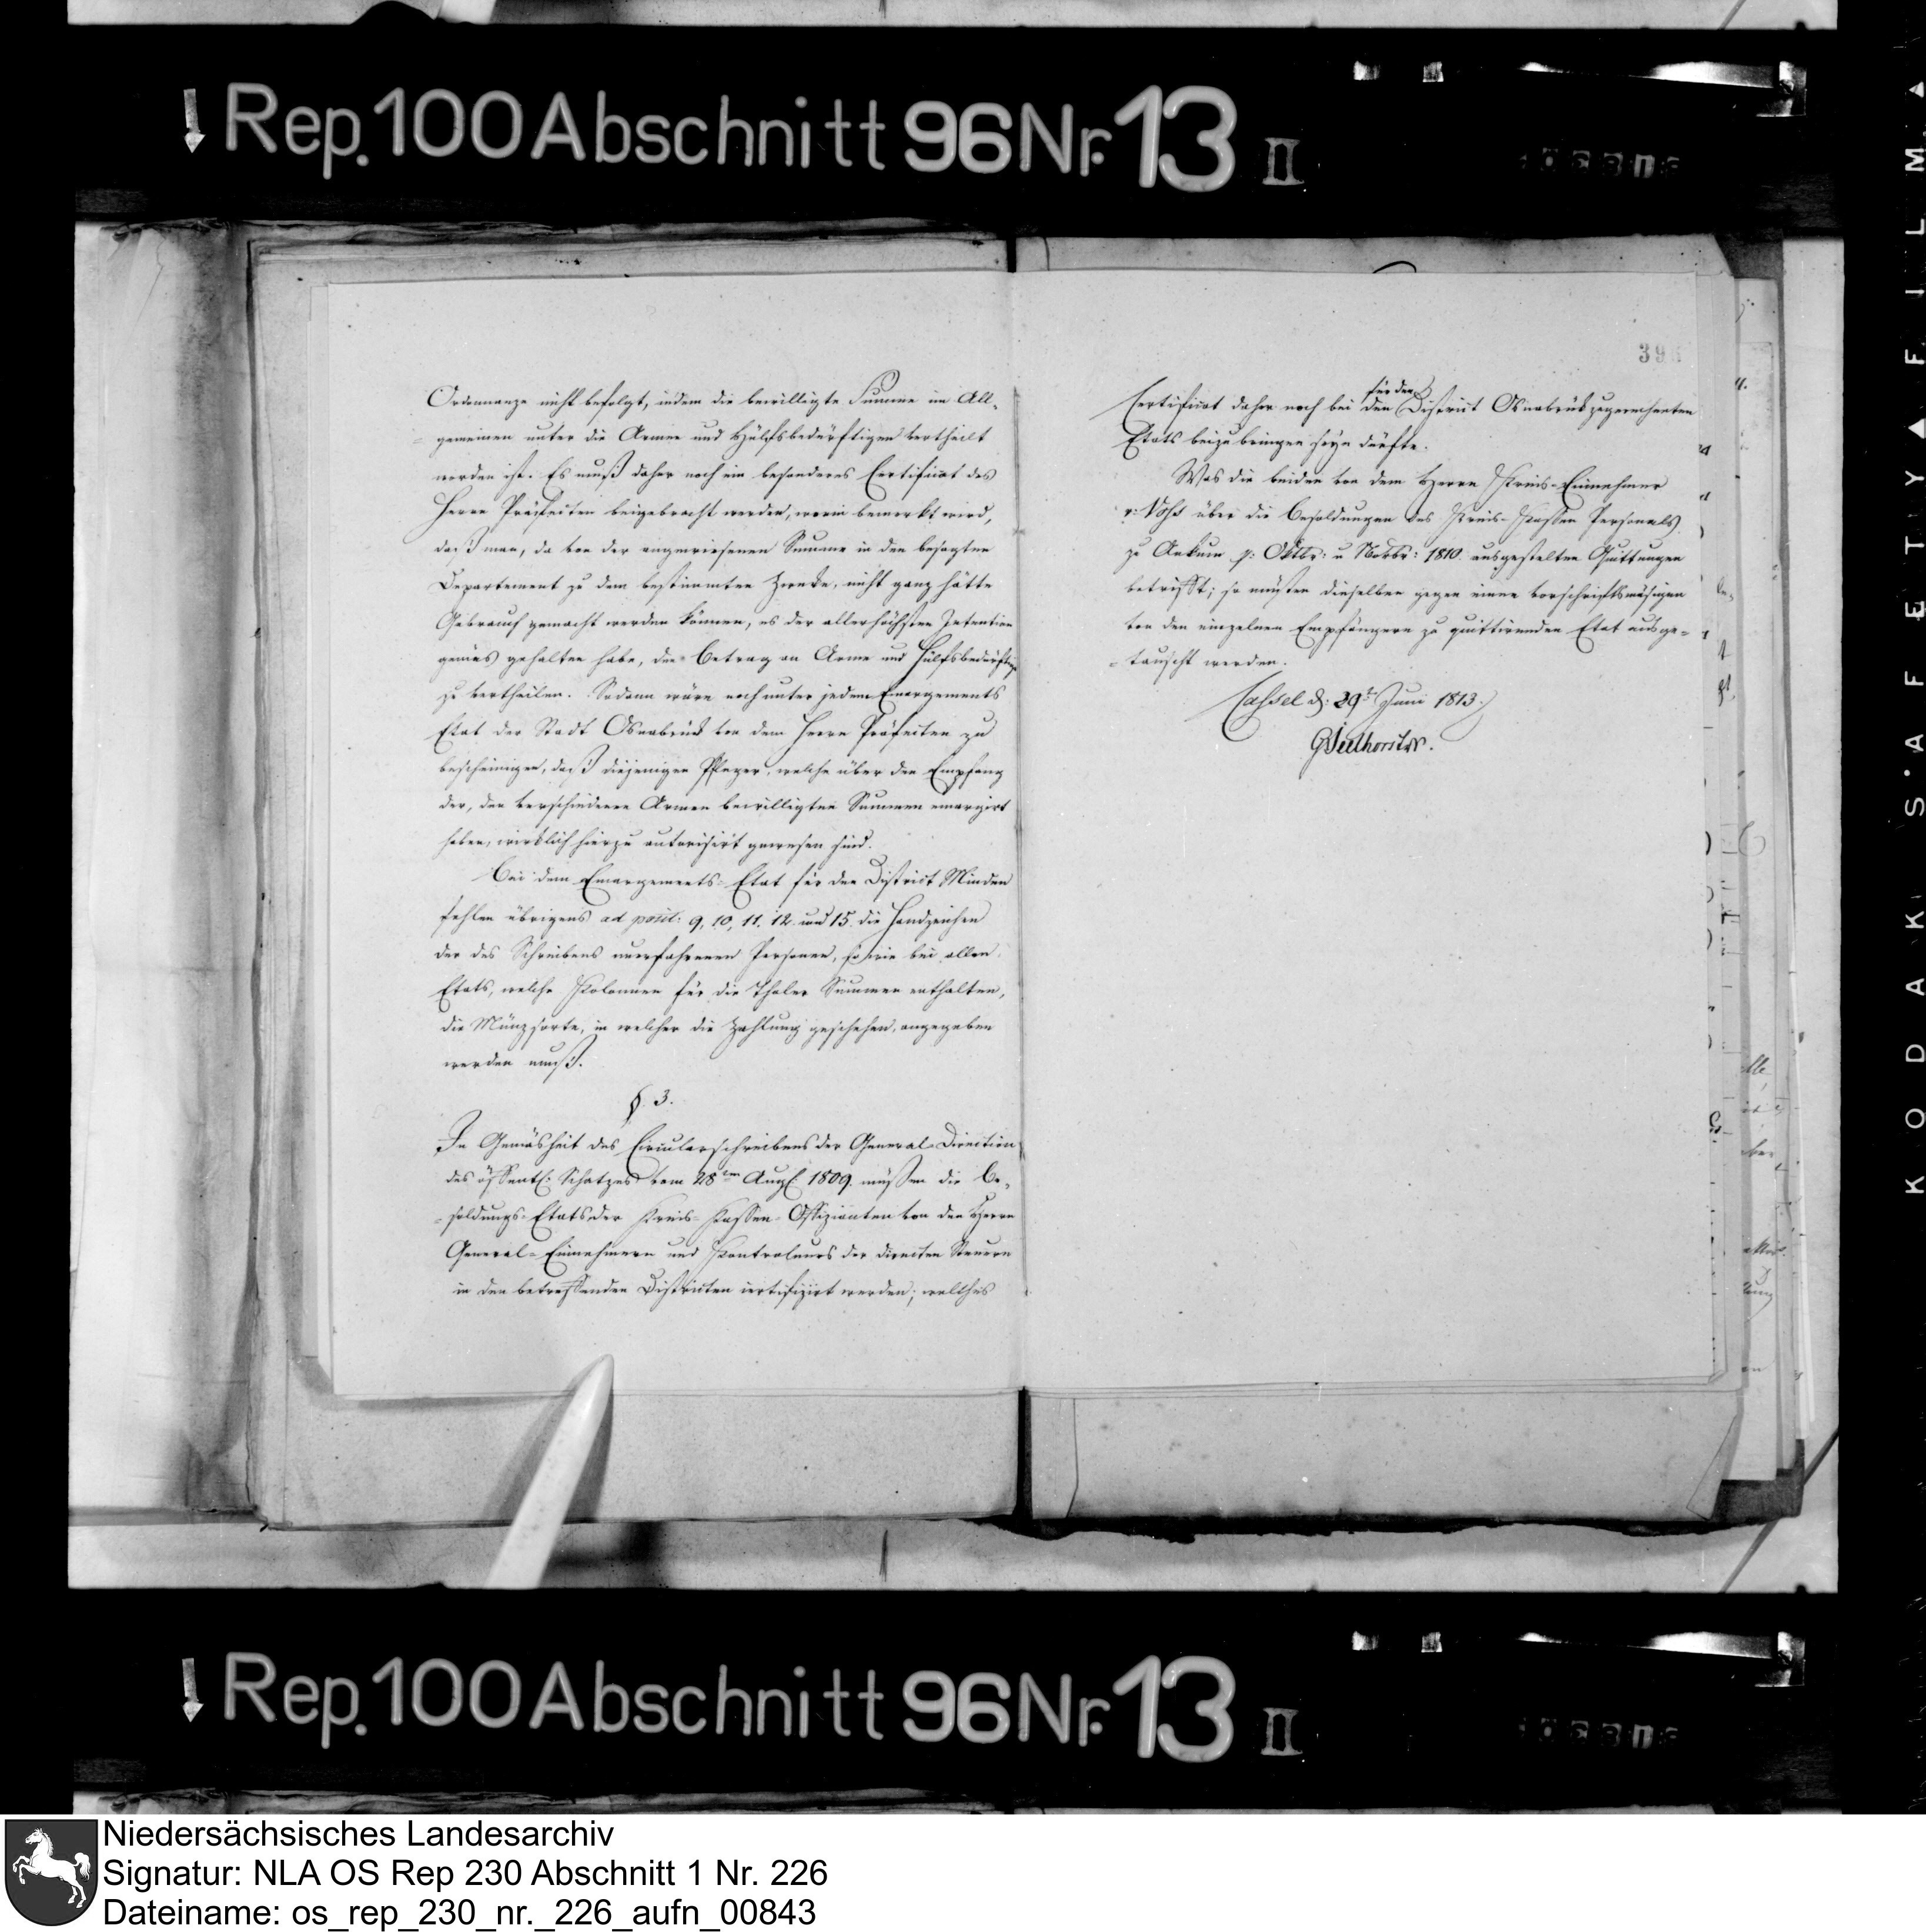 Rep. 100 Abschnitt 96 Nr. 13 II
Ordonnanze nicht befolgt, indem die bewilligte Summe im All-
gemeinen unter die Armen und Hülfsbedürftigen vertheilt
worden ist. Es muß daher noch ein besonderes Certificat des
Herrn Präfecten beigebracht werden, worin bemerkt wird,
daß man, da von der angewiesenen Summe in den besagten
Departement zu dem bestimmten Zwecke, nicht ganz hätte
Gebrauch gemacht werden können, es der allerhöchsten Intention
gemäs gehalten habe, den Betrag an Arme und Hülfsbedürftige
zu vertheilen. Sodann wäre noch unter jedem Emargements
Etat der Stadt Osnabrück von dem Herrn Präfecten zu
bescheinigen, daß diejenigen Pfleger, welche über den Empfang
der, den verschiedenen Armen bewilligten Summen emargirt
haben, wirklich hierzu autorisirt gewesen sind.
Bei dem Emargements-Etat für den District Minden
fehlen übrigens ad posit: 9, 10, 11, 12 und 15. die Handzeichen
der des Schreibens unerfahrenen Personen, so wie bei allen
Etats, welche Kolonnen für die Thaler Summen enthalten,
die Münzsorte, in welcher die Zahlung geschehen, angegeben
werden muß.
§. 3.
In Gemäsheit des Circularschreibens der General-Direction
des öffentl: Schatzes vom 28ten Aug: 1809. müssen die Be-
soldungs-Etats der Kreis-Kassen-Offizianten von den Herrn
General-Einnehmern und Kontroleurs der directen Steuern
in den betreffenden Districten certifizirt werden; welches
39
für den
Certificat daher noch bei den District Osnabrück zugerechneten
Etats beizubringen seyn dürfte.
Was die beiden von dem Herrn Kreis-Einnehmer
v: Voß über die Besoldungen des Kreis-Kassen Personals
zu Ankum p: Oktbr: u Novbr: 1810. ausgestelten Quittungen
betrifft; so müsten dieselben gegen einen vorschriftsmäsigen
von den einzelnen Empfängern zu quittirenden Etat ausge-
tauscht werden.
Cassel d: 29t Juni 1813.
Rep. 100 Abschnitt 96 Nr. 13 II
KODAK S·AFETY▲FILM▲
Niedersächsisches Landesarchiv
Signatur: NLA OS Rep 230 Abschnitt 1 Nr. 226
Dateiname: os_rep_230_nr._226_aufn_00843